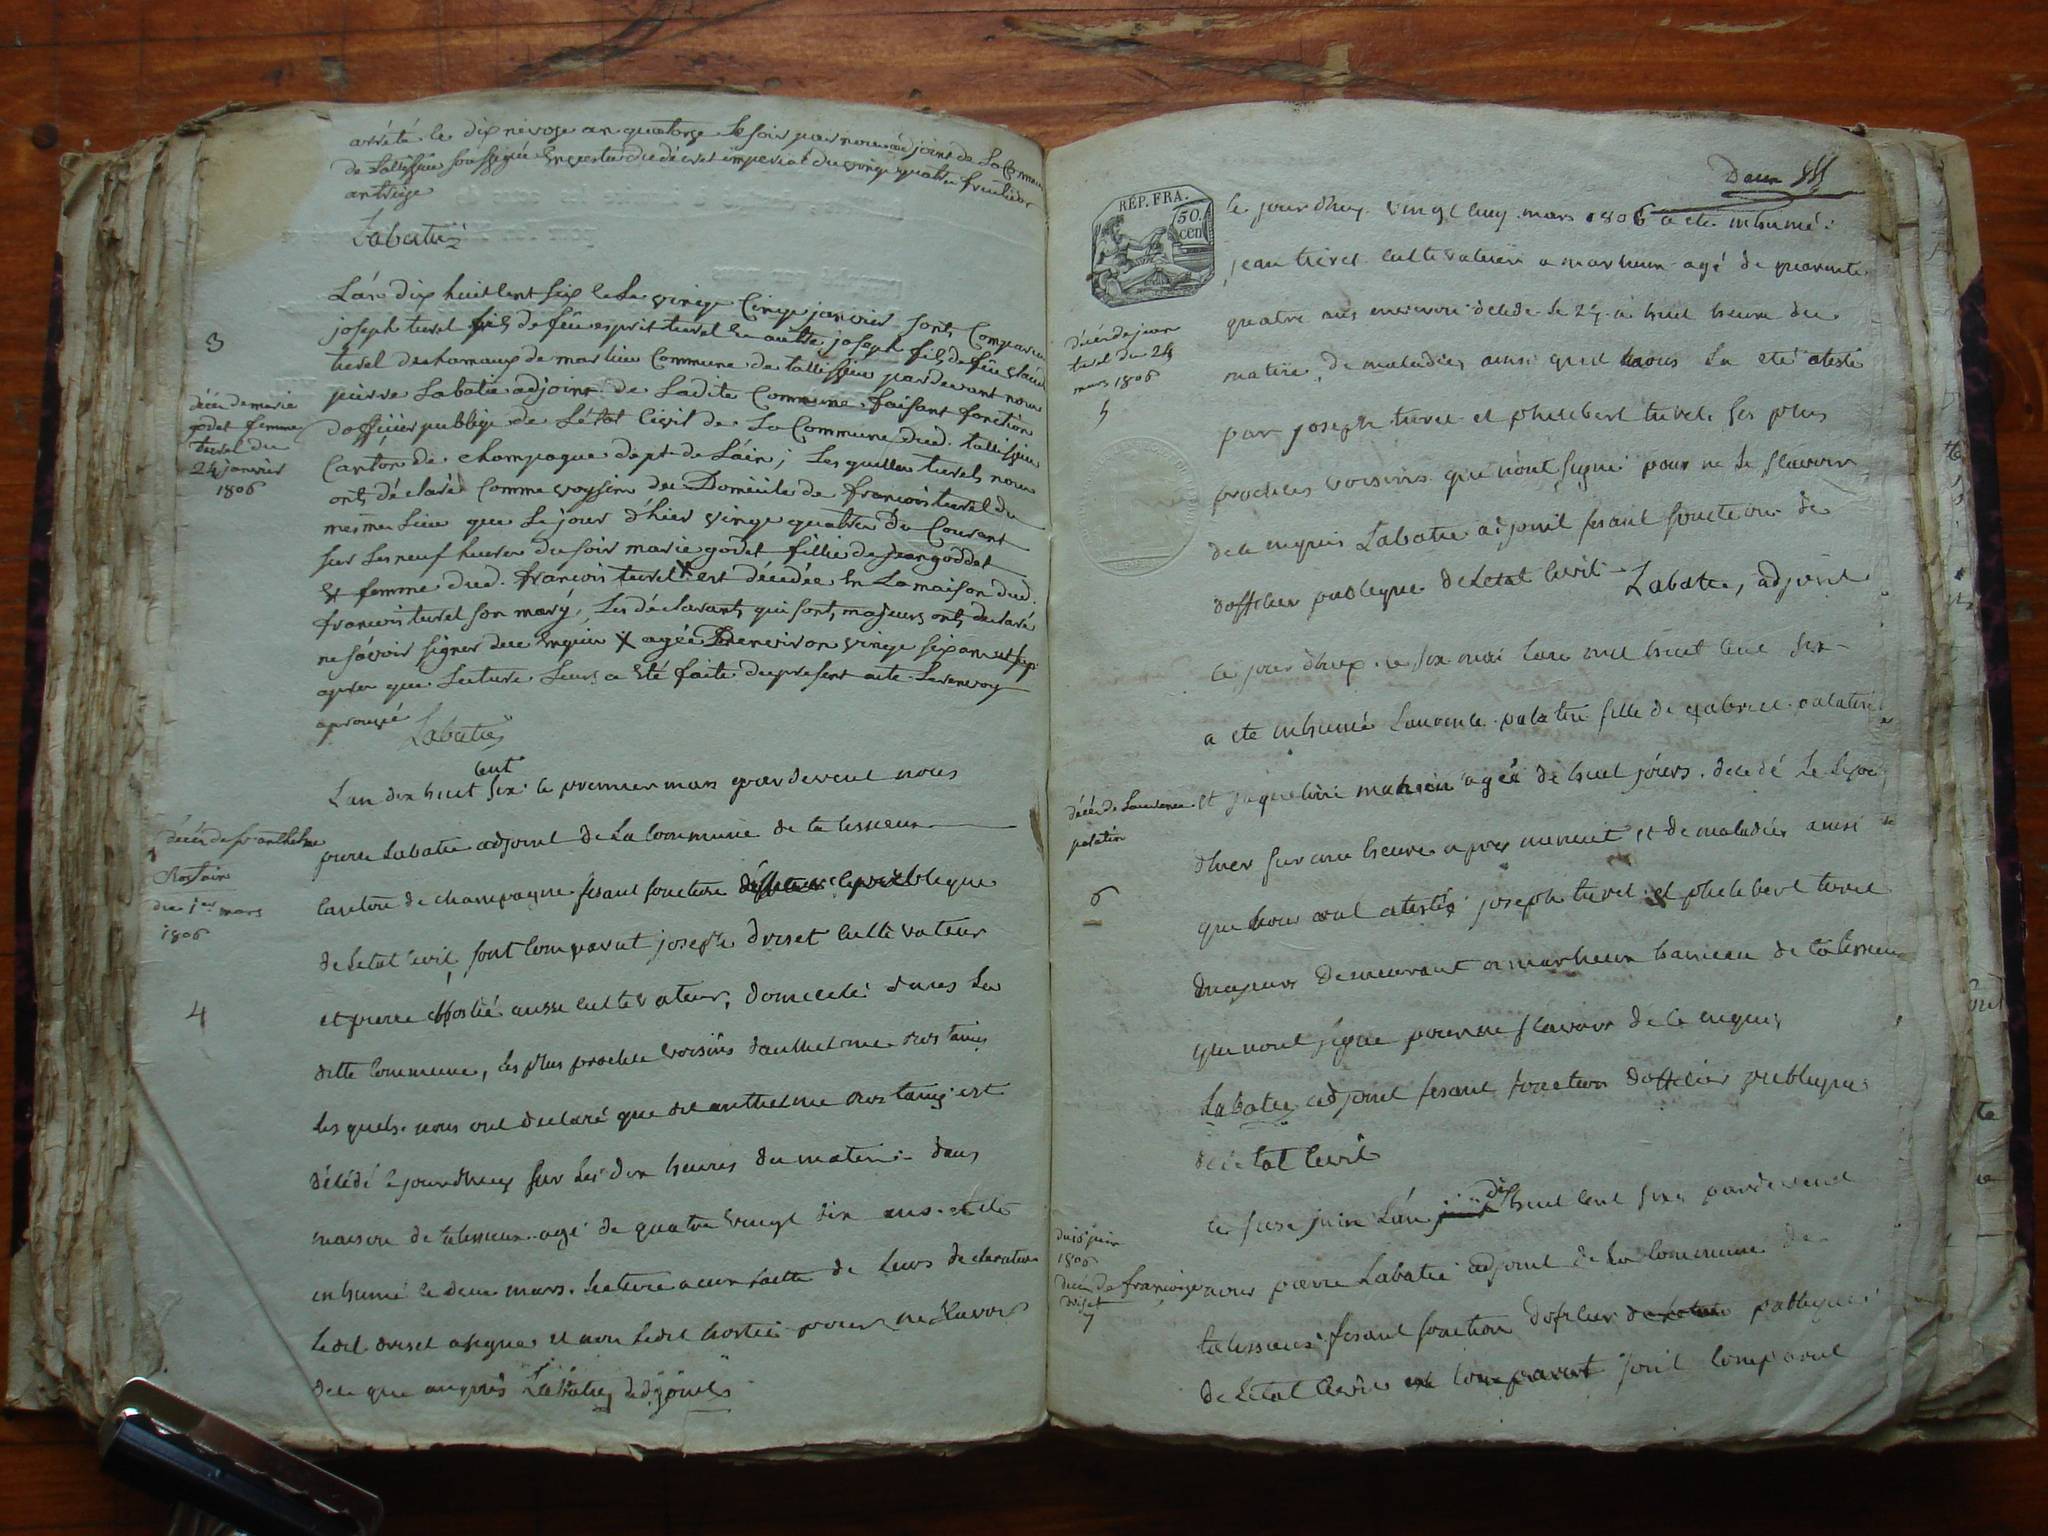 arrété le dix nivose an quatorze le soir par nous adjoint de la Commune
de tallissieu soussigné en vertu du décret imperial du vingt quatre fructidor
an treize
Labatie
3
décés de marie
godet femme
turel du
24 janvier
1806
L'an dix huit cent six le vingt Cinq janvier sont Comparu
joseph turel fils de feu esprit turel et autre joseph fils de feu
turel du hamaux de marlieu Commune de tallissieu pardevant nous
pierre Labatie adjoint de Ladite Commune faisant fonction
d'officier publiqe de L'état Civil de La Commune dud. tallissieu
Canton de champagne dept. de L'ain; Lesquelles turel nous
ont déclaré Comme voysin du Domicile de françois turel du
mesme Lieu que Le jour d'hier vingt quatre du Courant
sur Les neuf heures du soir marie godet fillie de jean goddet
et femme dud. françois turel X est décédée en La maison dud.
françois turel son mary, Les déclarants qui sont majeurs ont déclaré
ne sávoir signer de ce enquis X agée D'environ vingt six ans
apres que Lecture Leurs a été faite du present acte Le renvoy
aprouvé
Labatie
décés de anthelme
Rostain
du 1er mars
1806
4
cent
L'an dix huit six le premier mars par devent nous
pierre Labatie adjoint de La Commune de talissieux
Canton de champagne fesant fonction publique
de Letat Civil sont Comparut joseph driset Cultivateur
et pierre aussi Cultivateur, domicilié dans La
ditte Commune, les plus proche voisins d'anthelme rostaing
les quels nous ont declaré que dit anthelme rostaing est
décédé le jourdhuy sur Les dix heures du matin dans
maison de talissieux agé de quatre vingt dix ans et été
inhumé le deux mars. Lecture a eux faitte de leurs declaration
Ledit driset a signe et non Ledit pour ne Scavoir
dece que enquis Labatie adjoint
Deux
RÉP. FRA.
50.
cen
décés de jean
turel du 24
mars 1806
5
le jourdhuy vingt cinq mars 1806 a eté inhumé
jean turel cultivateur a marlieux agé de quarente
quatre ans environ décédé le 24 a huit heure du
matin de maladies ainsi quil nous La eté atesté
par joseph turel et philibert turel ses plus
proches voisins que nont signé pour ne Le scavoir
dece enquis Labatie adjoint fesant fonction de
dofficier publique de Letat Civil Labatie, adjoint
décés de Laurence
palatin
6
Ce jourdhuy le six mai lan mil huit cent six
a eté inhumé Laurence palatin fille de gabriel palatin
et jaqueline agée de huit jours décédé Le jour
dhier sur une heure apres minuit et de maladies ainsi
que nous ont atestés joseph turel et philibert turel
majeurs demeurant a marlieux hameau de talissieux
que nont signé pour ne scavoir de ce enquis
Labatie adjoint fesant fonction dofficier publique
de Letat Civil
du 16 juin
1806
décés de françoise
driset
7
le seze juin L'an dix huit cent six pardevend
nous pierre Labatie adjoint de La Commune de
talissieux fesant fonction dofficier publique
de Letat Civil sont comparut